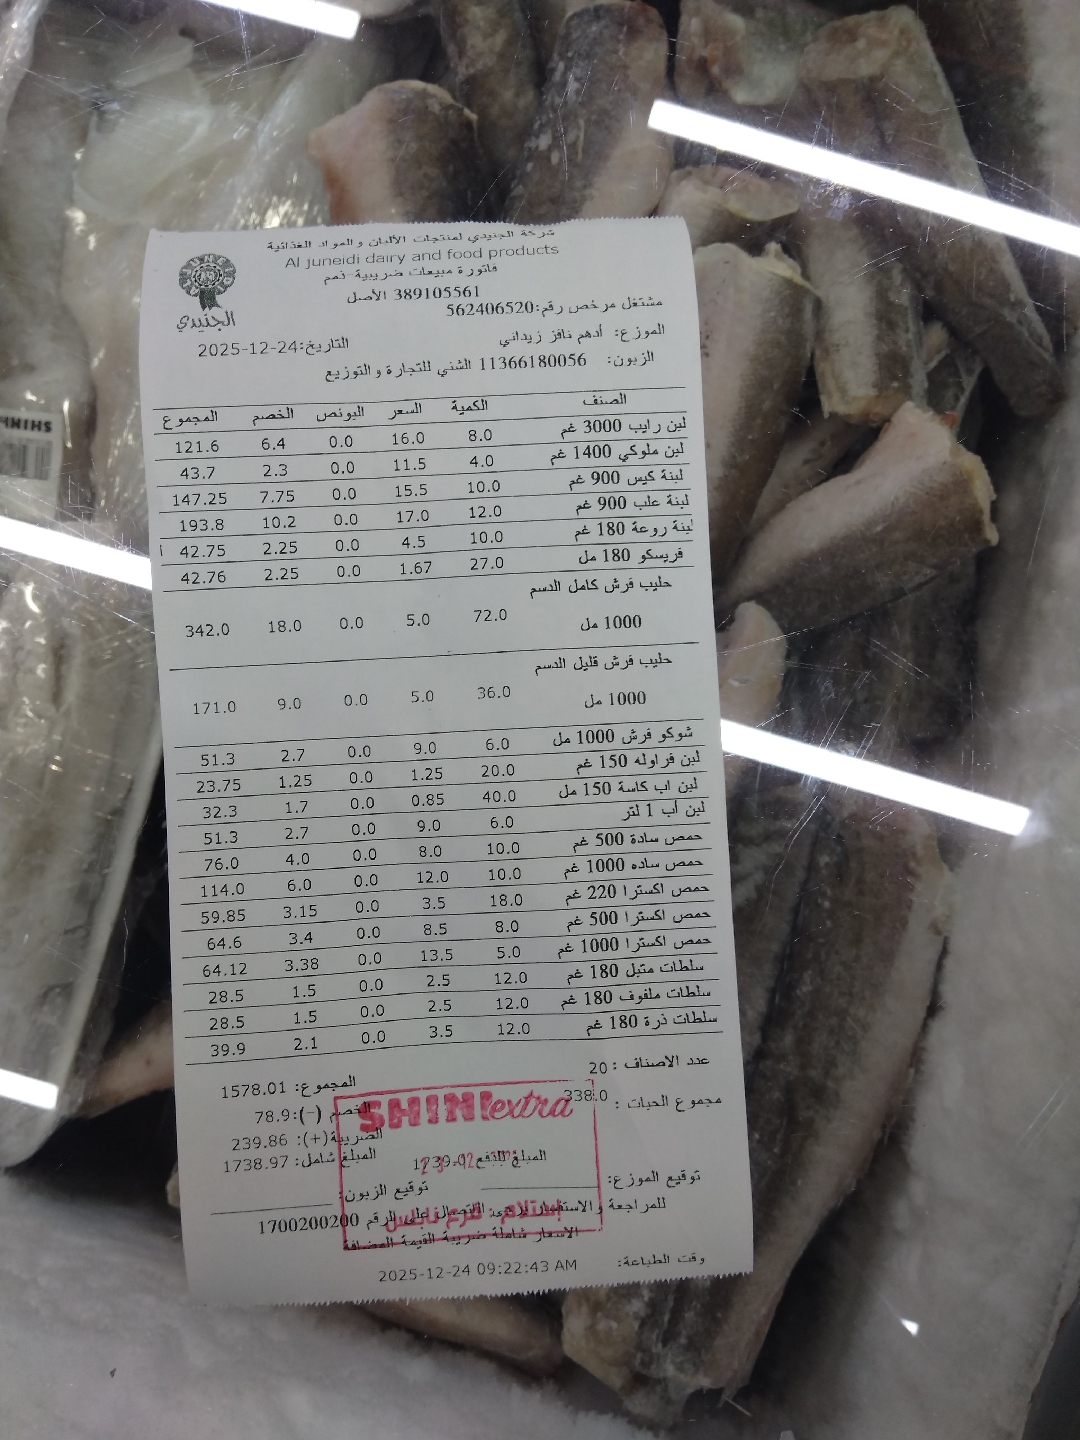 شركة الجنيدي لمنتجات الألبان والمواد الغذائية
Al Juneidi dairy and food products
فاتورة مبيعات ضريبية-ذمم
389105561 الأصل
مشتغل مرخص رقم:562406520
الجنيدي
الموزع: أدهم نافز زيداني
التاريخ:2025-12-24
الزبون: 11366180056 الشني للتجارة والتوزيع
الصنف الكمية السعر البونص الخصم المجموع
لبن رايب 3000 غم 8.0 16.0 0.0 6.4 121.6
لبن ملوكي 1400 غم 4.0 11.5 0.0 2.3 43.7
لبنة كيس 900 غم 10.0 15.5 0.0 7.75 147.25
لبنة علب 900 غم 12.0 17.0 0.0 10.2 193.8
لبنة روعة 180 غم 10.0 4.5 0.0 2.25 42.75
فريسكو 180 مل 27.0 1.67 0.0 2.25 42.76
حليب فرش كامل الدسم
1000 مل 72.0 5.0 0.0 18.0 342.0
حليب فرش قليل الدسم
1000 مل 36.0 5.0 0.0 9.0 171.0
شوكو فرش 1000 مل 6.0 9.0 0.0 2.7 51.3
لبن فراوله 150 غم 20.0 1.25 0.0 1.25 23.75
لبن اب كاسة 150 مل 40.0 0.85 0.0 1.7 32.3
لبن أب 1 لتر 6.0 9.0 0.0 2.7 51.3
حمص سادة 500 غم 10.0 8.0 0.0 4.0 76.0
حمص ساده 1000 غم 10.0 12.0 0.0 6.0 114.0
حمص اكسترا 220 غم 18.0 3.5 0.0 3.15 59.85
حمص اكسترا 500 غم 8.0 8.5 0.0 3.4 64.6
حمص اكسترا 1000 غم 5.0 13.5 0.0 3.38 64.12
سلطات متبل 180 غم 12.0 2.5 0.0 1.5 28.5
سلطات ملفوف 180 غم 12.0 2.5 0.0 1.5 28.5
سلطات ذرة 180 غم 12.0 3.5 0.0 2.1 39.9
عدد الاصناف : 20
المجموع: 1578.01
مجموع الحبات : 338.0
الخصم (-):78.9
الضريبة(+): 239.86
المبلغ شامل: 1738.97
المبلغ للدفع 1739.0
SHINI extra
توقيع الموزع:
توقيع الزبون:
للمراجعة والاستفسار يرجى الاتصال على الرقم 1700200200
إستلام - فرع نابلس
الاسعار شاملة ضريبة القيمة المضافة
وقت الطباعة: 2025-12-24 09:22:43 AM